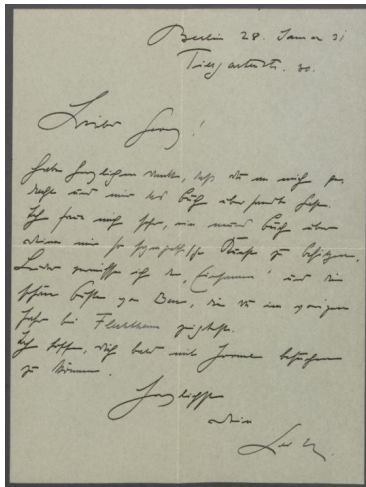 Berlin 28. Januar 31
Tiergartenstr. 30.
Lieber Georg!
Habe herzlichen Dank, daß du an mich ge-
dacht und mir das Buch übersandt hast.
Ich freue mich sehr, ein neues Buch über
deine mir so sympathische Kunst zu besitzen.
Leider vermisse ich den "Einsamen" und die
schöne Büste von Baur, die du im vorigen
Jahr bei Flechtheim zeigtest.
Ich hoffe, dich bald mit besuchen
zu können.
Herzlichst
dein